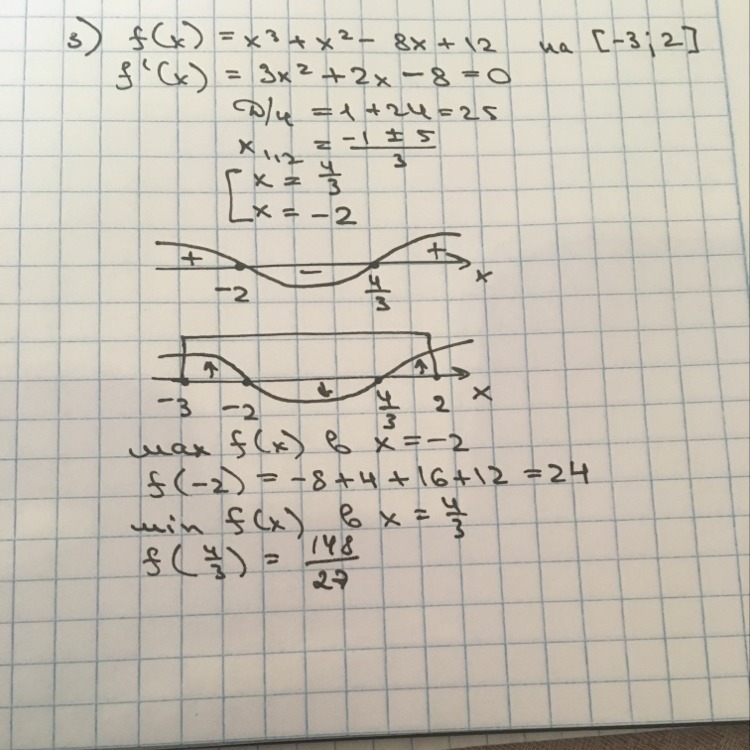 3) f(x) = x³ + x² - 8x + 12 на [-3; 2]
f'(x) = 3x² + 2x - 8 = 0
D/4 = 1 + 24 = 25
x₁,₂ = (-1 ± 5)/3
[ x = 4/3
x = -2
+ - + x
-2 4/3
↑ ↓ ↑ x
-3 -2 4/3 2
max f(x) в x = -2
f(-2) = -8 + 4 + 16 + 12 = 24
min f(x) в x = 4/3
f(4/3) = 148/27